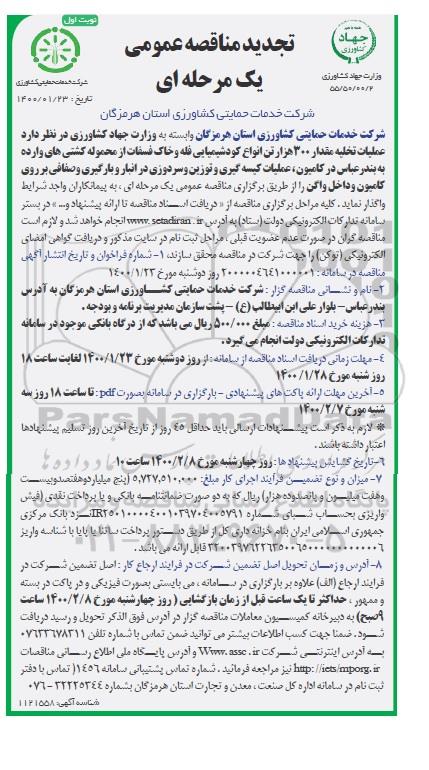 نوبت اول
جهاد
کشاورزی
وزارت جهاد کشاورزی
۵۵/۵۰/۰۰/۲
تجدید مناقصه عمومی
یک مرحله ای
شرکت خدمات حمایتی کشاورزی
تاریخ : ۱۴۰۰/۰۱/۲۳
شرکت خدمات حمایتی کشاورزی استان هرمزگان
شرکت خدمات حمایتی کشاورزی استان هرمزگان وابسته به وزارت جهاد کشاورزی در نظر دارد
عملیات تخلیه مقدار ۳۰۰ هزار تن انواع کود شیمیایی فله و خاک فسفات از محموله کشتی های وارده
به بندرعباس در کامیون ، عملیات کیسه گیری و توزین و سردوزی در انبار و بارگیری و صفافی بر روی
کامیون و داخل واگن را از طریق برگزاری مناقصه عمومی یک مرحله ای ، به پیمانکاران واجد شرایط
واگذار نماید . کلیه مراحل برگزاری مناقصه از « دریافت اسناد مناقصه تا ارائه پیشنهاد و... » در بستر
سامانه تدارکات الکترونیکی دولت (ستاد) به آدرس www. setadiran . ir انجام خواهد شد و لازم است
مناقصه گران در صورت عدم عضویت قبلی ، مراحل ثبت نام در سایت مذکور و دریافت گواهی امضای
الکترونیکی (توکن) را جهت شرکت در مناقصه محقق سازند، ۱- شماره فراخوان و تاریخ انتشار آگهی
مناقصه در سامانه : ۲۰۰۰۰۰۴۶۴۱۰۰۰۰۰۱ روز دوشنبه مورخ ۱۴۰۰/۱/۲۳
۲- نام و نشانی مناقصه گزار : شرکت خدمات حمایتی کشاورزی استان هرمزگان به آدرس
بندرعباس – بلوار علی ابن ابیطالب (ع) – پشت سازمان مدیریت برنامه و بودجه .
۳- هزینه خرید اسناد مناقصه : مبلغ ۵۰۰/۰۰۰ ریال می باشد که از درگاه بانکی موجود در سامانه
تدارکات الکترونیکی دولت انجام می گیرد.
۴- مهلت زمانی دریافت اسناد مناقصه از سامانه : از روز دوشنبه مورخ ۱۴۰۰/۱/۲۳ لغایت ساعت ۱۸
روز شنبه مورخ ۱۴۰۰/۱/۲۸
۵- آخرین مهلت ارائه پاکت های پیشنهادی - بارگزاری در سامانه بصورت pdf : تا ساعت ۱۸ روز سه
شنبه مورخ ۱۴۰۰/۲/۷
* لازم به ذکر است پیشنهادات ارسالی باید حداقل ۴۵ روز از تاریخ آخرین روز تسلیم پیشنهادها
اعتبار داشته باشند.
۶- تاریخ گشایش پیشنهادها : روز چهارشنبه مورخ ۱۴۰۰/۲/۸ ساعت ۱۰
۷- میزان و نوع تضمین فرآیند اجرای کار مبلغ: ۵,۷۲۷,۵۱۰,۰۰۰ (پنج میلیارد و هفتصد و بیست
و هفت میلیون و پانصد و ده هزار) ریال که به دو صورت ضمانتنامه بانکی و یا پرداخت نقدی (فیش
واریزی بحساب شبای شماره IR۲۵۰۱۰۰۰۰۴۰۰۱۰۳۹۷۰۴۰۰۵۷۹۱ نزد بانک مرکزی
جمهوری اسلامی ایران بنام خزانه داری کل از طریق دستور پرداخت ساتنا یا پایا با شناسه واریز
قابل ارائه می باشد .
۸- آدرس و زمان تحویل اصل تضمین شرکت در فرایند ارجاع کار : اصل تضمین شرکت در
فرایند ارجاع (الف) علاوه بر بارگزاری در سامانه ، می بایستی بصورت فیزیکی و در پاکت در بسته
و ممهور ، حداکثر تا یک ساعت قبل از زمان بازگشایی ( روز چهارشنبه مورخ ۱۴۰۰/۲/۸ ساعت
۹ صبح) به دبیرخانه کمیسیون معاملات مناقصه گزار در آدرس فوق الذکر تحویل و رسید دریافت
شود . ضمنا جهت کسب اطلاعات بیشتر می توانید ضمن تماس با شماره تلفن ۰۷۶۳۳۶۷۸۳۱۱
به آدرس اینترنتی شرکت Www. assc . ir و آدرس پایگاه ملی اطلاع رسانی مناقصات
http: //iets/mporg. ir نیز مراجعه فرمائید . شماره تماس پشتیبانی سامانه ۱۴۵۶( تماس با دفتر
ثبت نام در سامانه اداره کل صنعت ، معدن و تجارت استان هرمزگان بشماره ۳۲۲۲۵۳۴۴ - ۰۷۶
شناسه آگهی: ۱۱۲۱۵۵۸